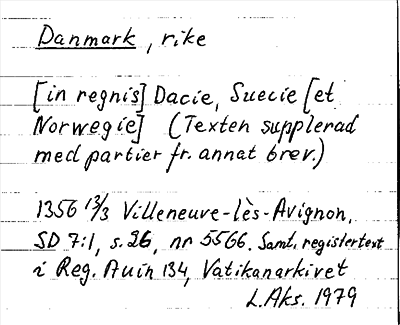 Danmark, rike
[in regnis] Dacie, Suecie [et
Norwegie] (Texten supplerad
med partier fr. annat brev.)
1356 13/3 Villeneuve-lès-Avignon,
SD 7:1, s. 26, nr 5566. Samt. registertext
i Reg. Avin 134, Vatikanarkivet
L. Aks. 1979